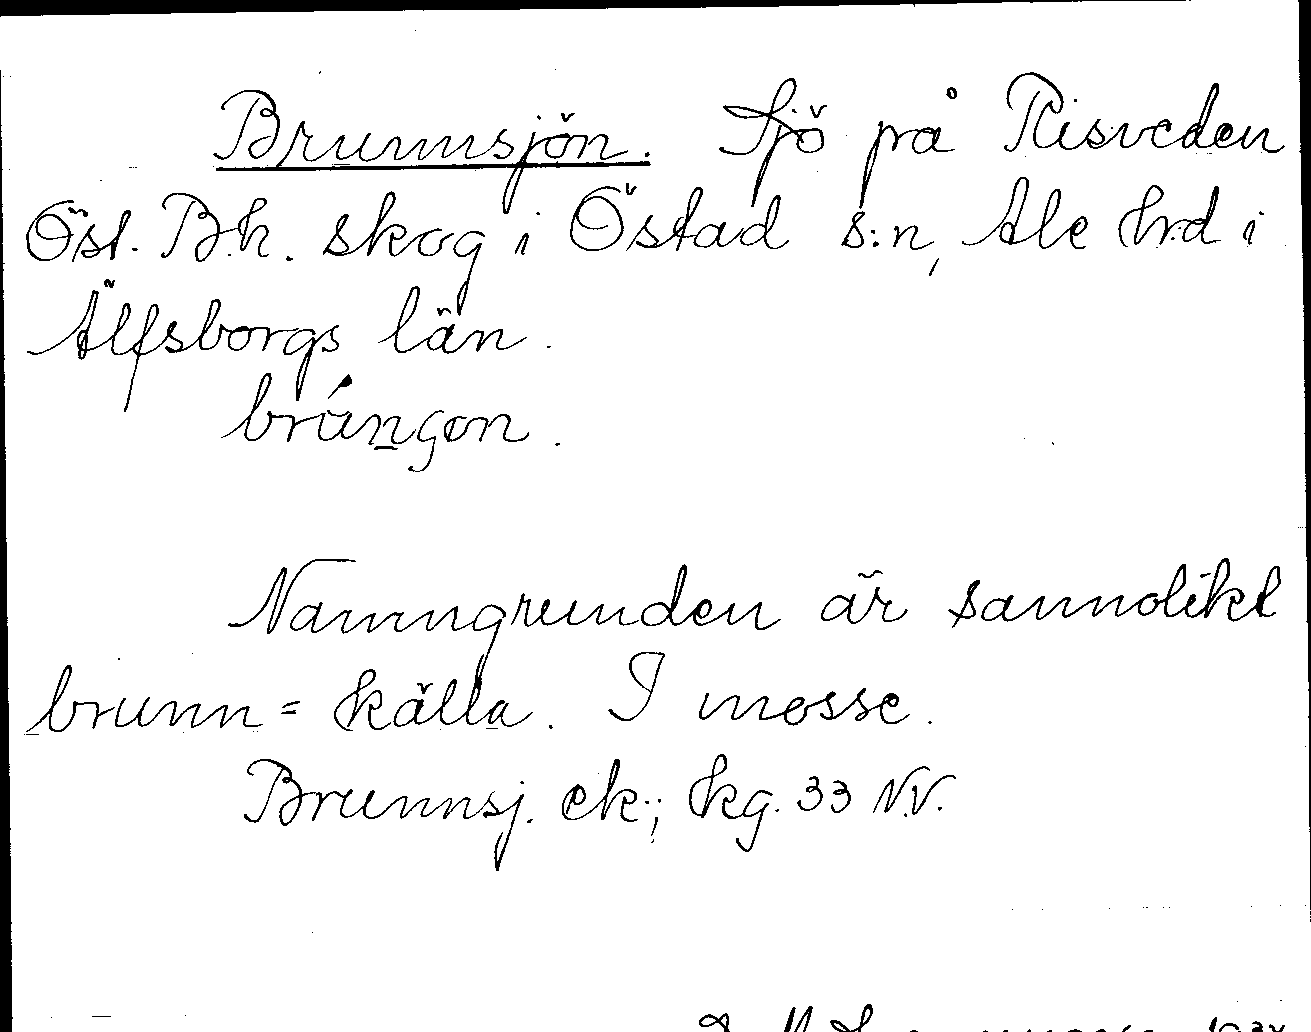 Brunnsjön. Sjö på Risveden
Öst. B.h. skog i Östad s:n, Ale h:d i
Älfsborgs län.
brúngon.
Namngrunden är sannolikt
brunn = källa. I mosse.
Brunnsj. ek.; kg. 33 N.V.